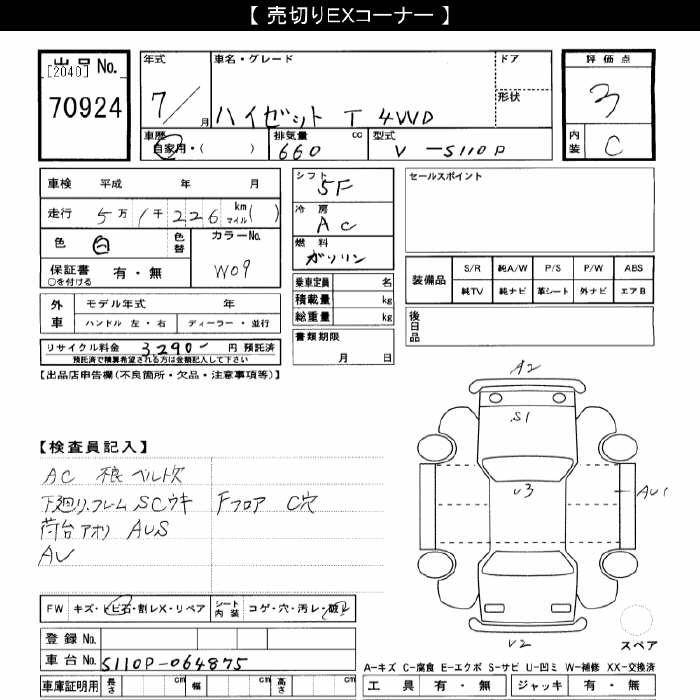 【 売切りEXコーナー 】
出品 No.
[2040]
70924
年式
7／月
車名・グレード
ハイゼット T 4WD
ドア
形状
評価点
3
内装
C
車歴
自家用・( )
排気量 cc
660
型式
V-S110P
車検 平成 年 月
走行 5万 1千 226 km マイル ( )
色 白 色替
カラーNo.
W09
保証書 有・無
○を付ける
外車 モデル年式 年
ハンドル 左・右 ディーラー・並行
リサイクル料金 3,290- 円 預託済
預託済で積算希望される方は金額記入して下さい
シフト
5F
冷房
AC
燃料
ガソリン
乗車定員 名
積載量 kg
総重量 kg
書類期限
月 日
セールスポイント
装備品 S/R 純A/W P/S P/W ABS
純TV 純ナビ 革シート 外ナビ エアB
後日品
【出品店申告欄(不良箇所・欠品・注意事項等)】
【検査員記入】
AC 不良 ベルト欠
下廻り、フレーム SCウキ Fフロア C穴
荷台アオリ AUS
AU
A2
S1
U3
AU1
U2
スペア
FW キズ・トビ石・割レX・リペア シート内装 コゲ・穴・汚レ・破レ
登録 No.
車台 No. S110P-064875
車庫証明用 長さ cm 幅 cm 高さ cm
A-キズ C-腐食 E-エクボ S-サビ U-凹ミ W-補修 XX-交換済
工具 有・無 ジャッキ 有・無